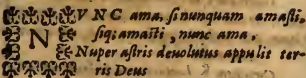 NVNC ama, ſi nunquam amaſti,
ſiq; amaſti, nunc ama,
Nuper aſtris deuolutus appulit ter-
ris Deus